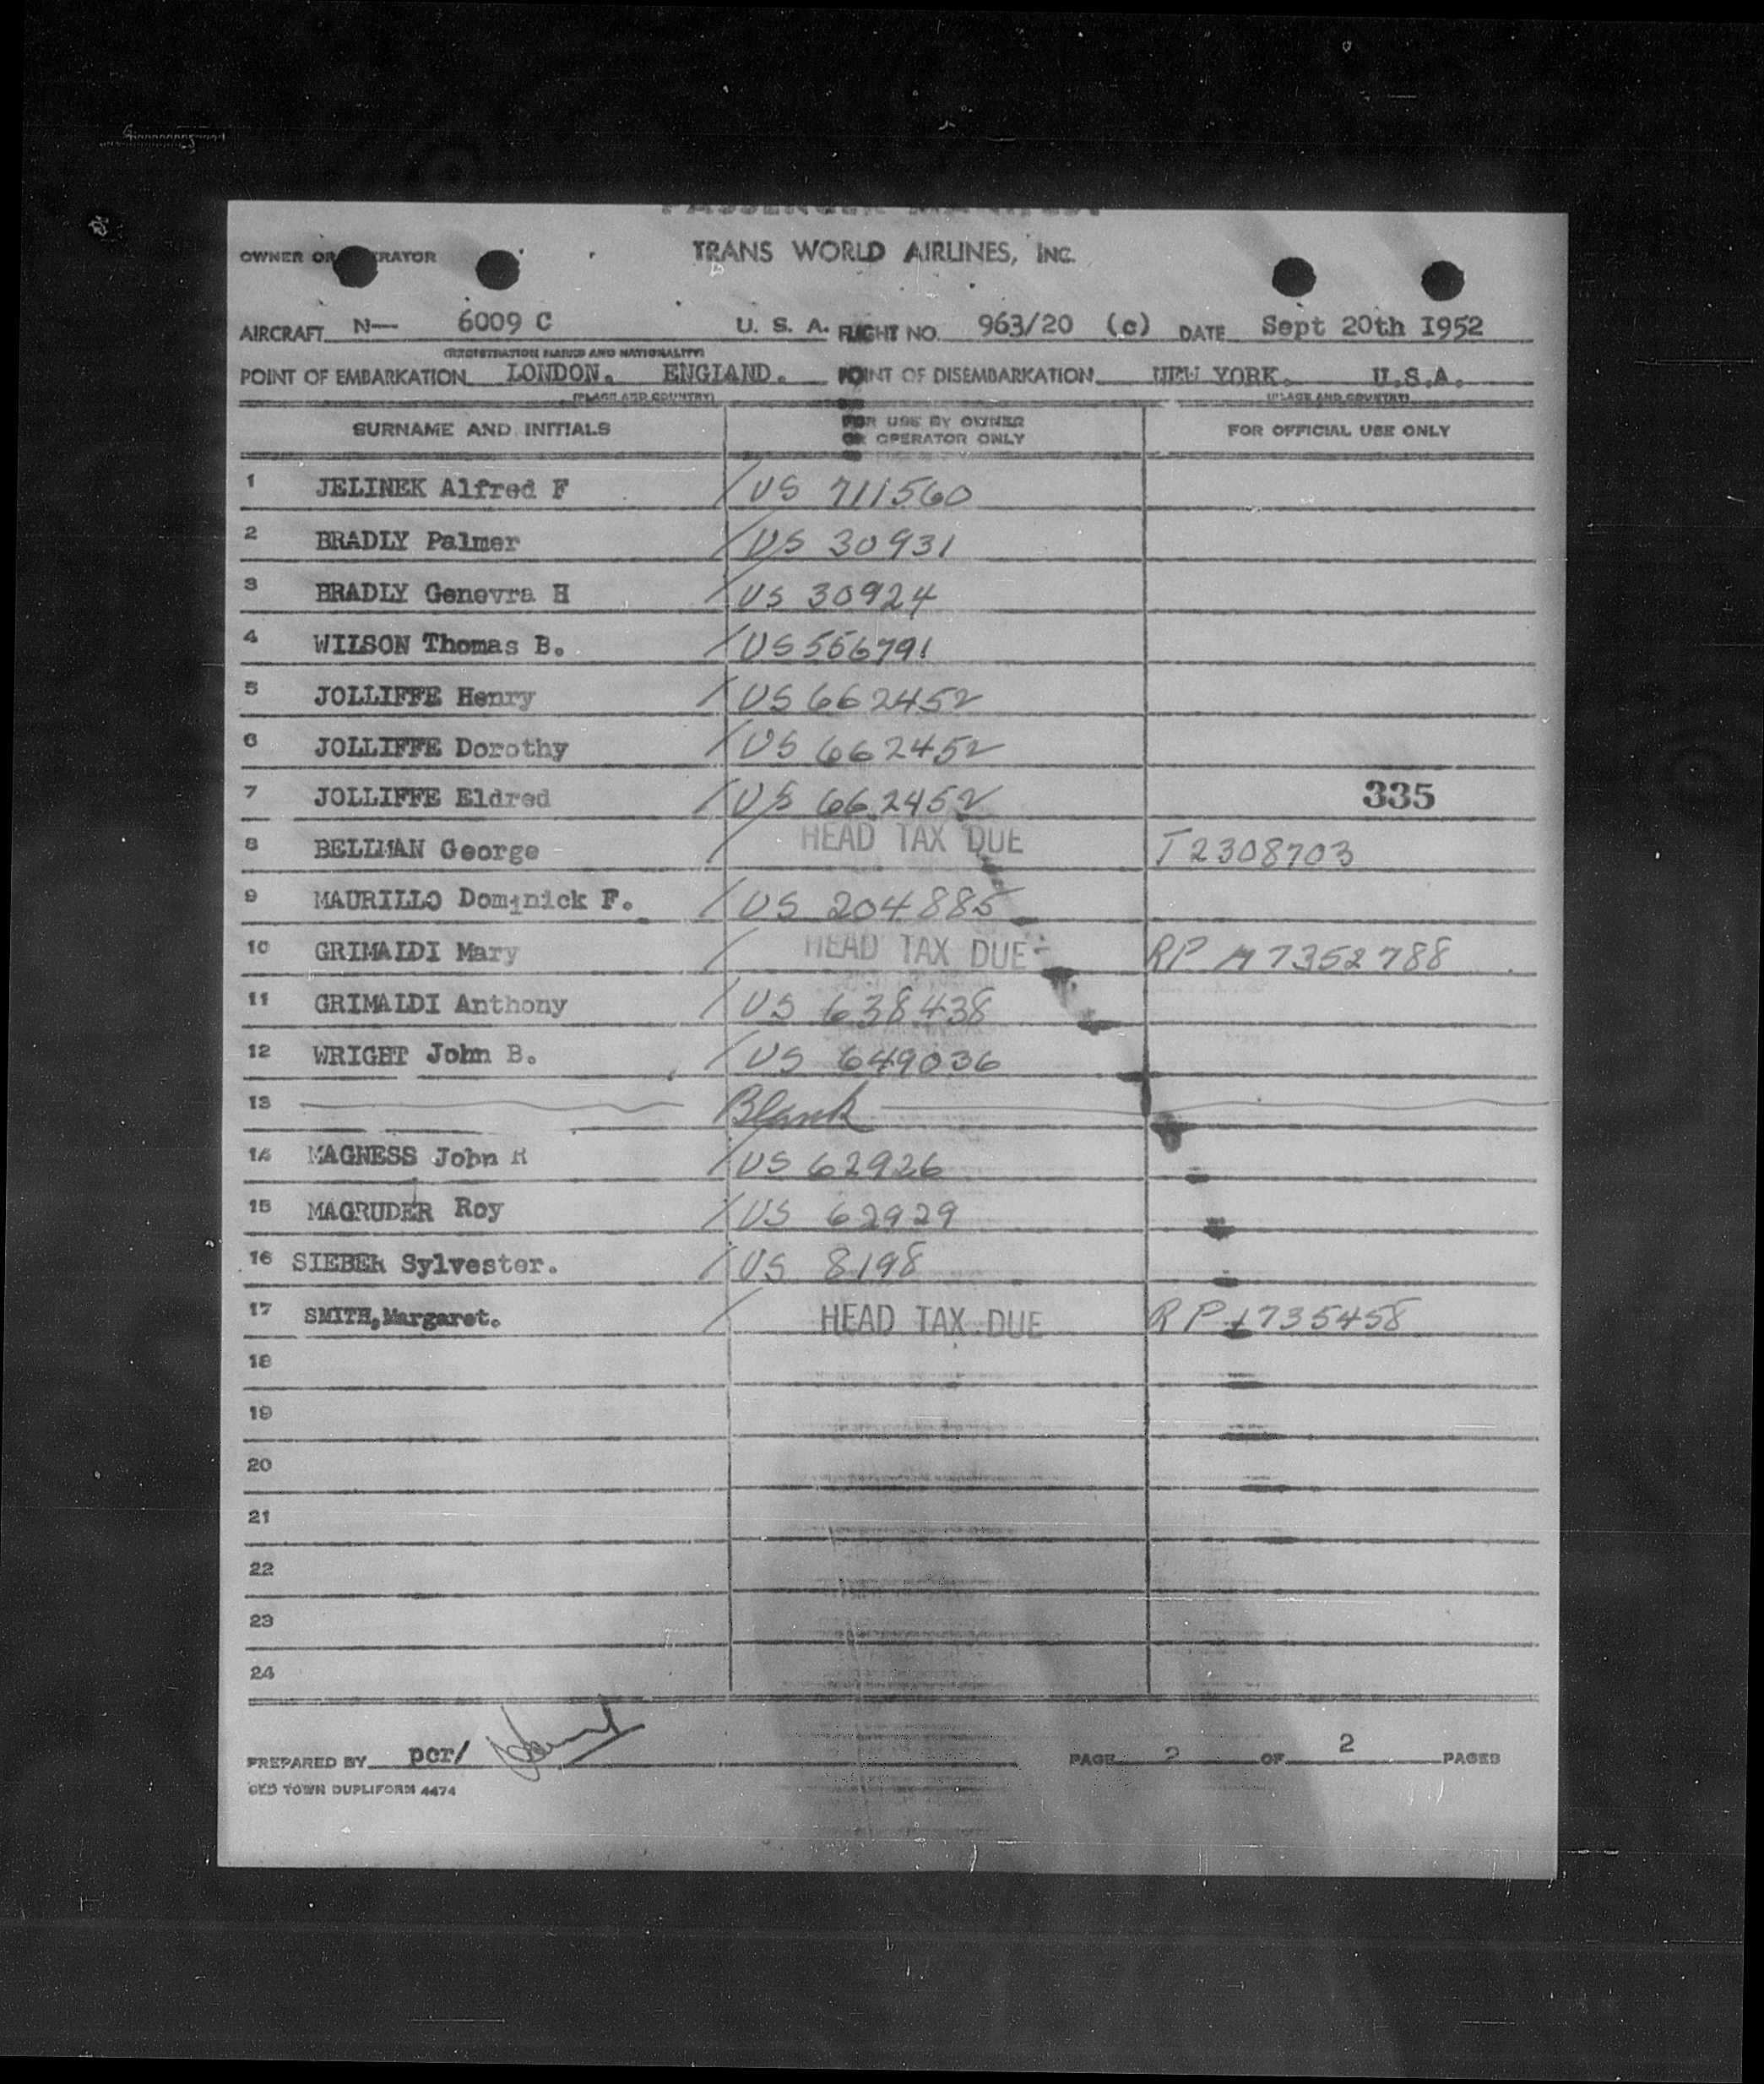 PASSENGER MANIFEST
OWNER OR OPERATOR TRANS WORLD AIRLINES, INC.
AIRCRAFT N— 6009 C U. S. A. FLIGHT NO. 963/20 (c) DATE Sept 20th 1952
(REGISTRATION MARKS AND NATIONALITY)
POINT OF EMBARKATION LONDON. ENGLAND. POINT OF DISEMBARKATION NEW YORK. U.S.A.
(PLACE AND COUNTRY) (PLACE AND COUNTRY)
SURNAME AND INITIALS FOR USE BY OWNER OR OPERATOR ONLY FOR OFFICIAL USE ONLY
1 JELINEK Alfred F / US 711560
2 BRADLY Palmer / US 30931
3 BRADLY Genevra H / US 30924
4 WILSON Thomas B. / US 556791
5 JOLLIFFE Henry / US 662452
6 JOLLIFFE Dorothy / US 662452
7 JOLLIFFE Eldred / US 662452 335
8 BELLMAN George / HEAD TAX DUE T2308703
9 MAURILLO Dominick F. / US 204885
10 GRIMALDI Mary / HEAD TAX DUE RP A7352788
11 GRIMALDI Anthony / US 638438
12 WRIGHT John B. / US 649036
13 Blank
14 MAGNESS John R / US 62926
15 MAGRUDER Roy / US 62929
16 SIEBER Sylvester. / US 8198
17 SMITH, Margaret. / HEAD TAX DUE RP 1735458
18
19
20
21
22
23
24
PREPARED BY per/ PAGE 2 OF 2 PAGES
OLD TOWN DUPLIFORM 4474